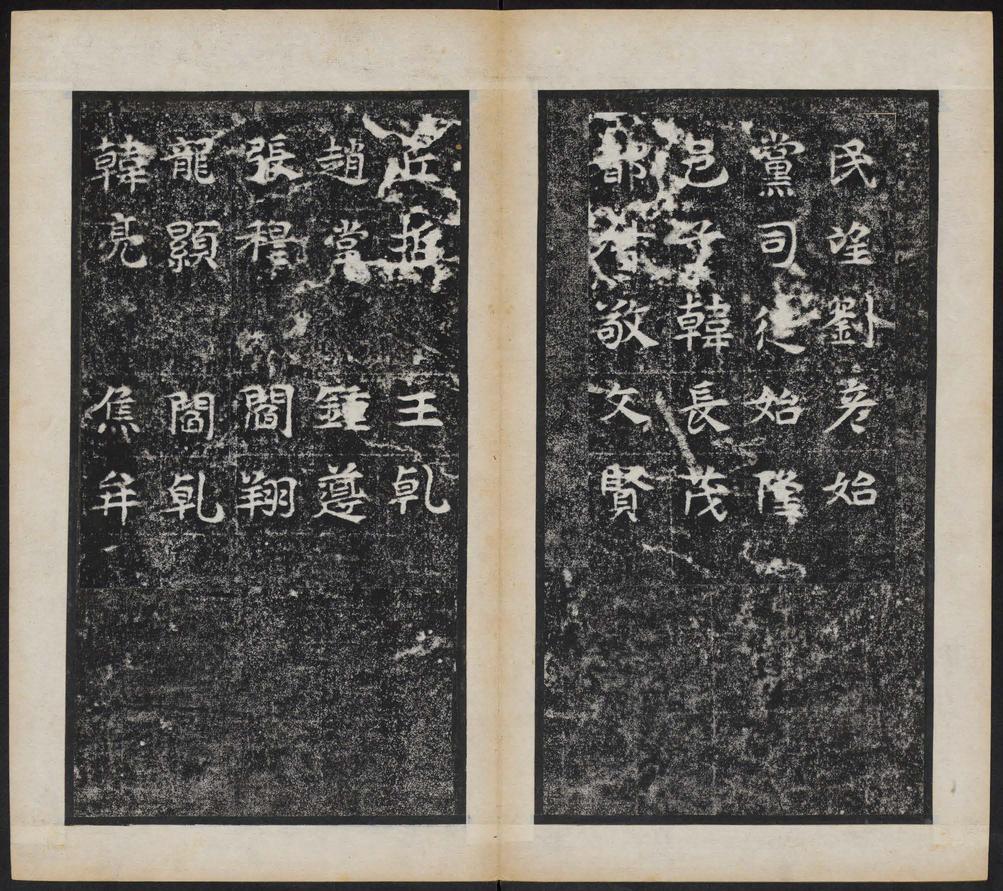 民望劉彥始
黨司徒始隆
邑子韓長茂
敬文賢
王乹
趙堂　鍾遵
張穆　閻翔
龍顯　閻乹
韓亮　焦弁